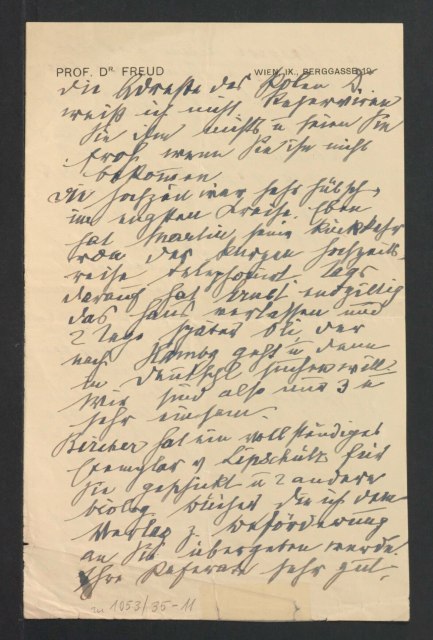 PROF. DR. FREUD
WIEN, IX., BERGGASSE 19
die Adresse des Polen D.
weiß ich nicht. Reserviren
Sie dem nichts u seien Sie
froh, wenn Sie ihn nicht
bekomen
Die Hochzeit war sehr hübsch,
im engsten Kreise. Eben
hat Martin seine Rückkehr
von der kurzen Hochzeits
reise telephonirt. Tags
darauf hat Ernst endgiltig
das Haus verlassen und
2 Tage später Oli, der
nach Hambg geht u dann
in Deutschl suchen will.
Wir sind also nur 3 u
sehr einsam.
hat ein vollständiges
Exemplar v Lipschütz für
Sie geschickt u 2 andere
biolog Bücher, die ich dem
Verlag z. Beförderung
an Sie übergeben werde.
Ihre Referate sehr gut.
zu 1053/35-11